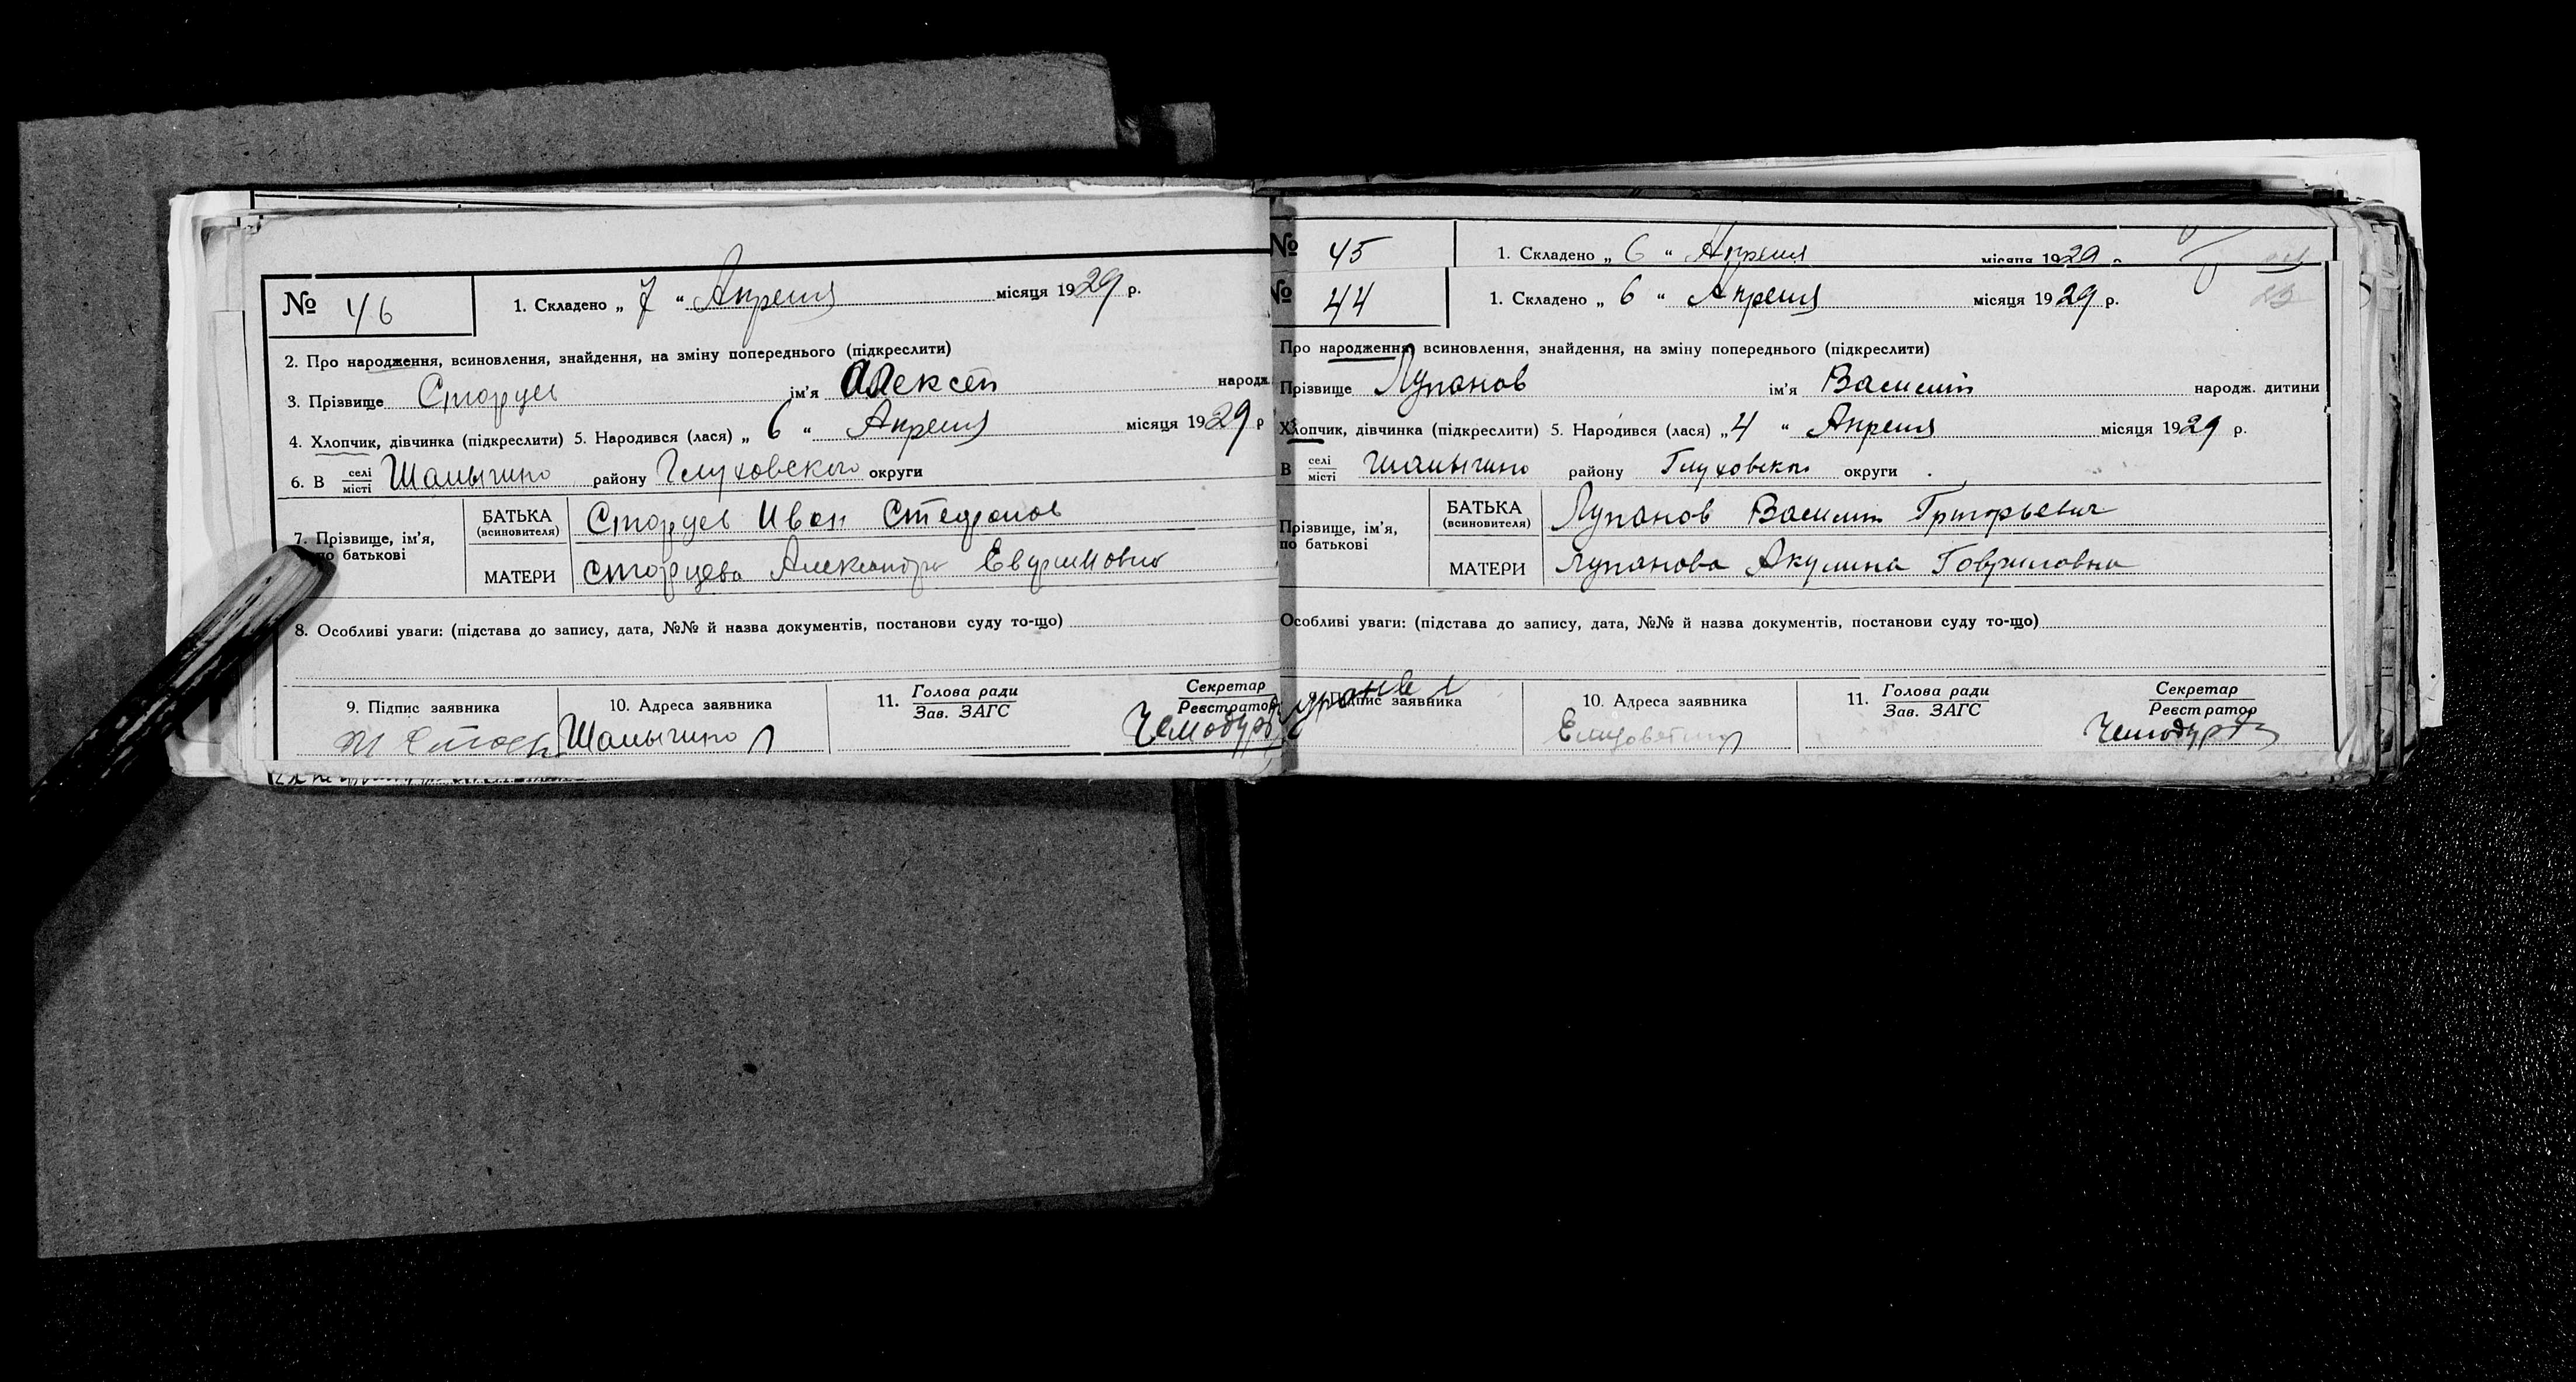 № 46 1. Складено „ 7 “ Апреля місяця 1929 р.
2. Про народження, всиновлення, знайдення, на зміну попереднього (підкреслити)
3. Прізвище Сторцев ім'я Алексей народж.
4. Хлопчик, дівчинка (підкреслити) 5. Народився (лася) „ 6 “ Апреля місяця 1929 р
6. В селі місті Шалыгино району Глуховского округи
7. Прізвище, ім'я, по батькові
БАТЬКА (всиновителя) Сторцев Иван Стефанов
МАТЕРИ Сторцева Александра Евфимовна
8. Особливі уваги: (підстава до запису, дата, №№ й назва документів, постанови суду то-що)
9. Підпис заявника 10. Адреса заявника 11. Голова ради Зав. ЗАГС Секретар Реєстратор
Шалыгино
№ 45 1. Складено „ 6 “ Апреля місяця 1929 р
№ 44 1. Складено „ 6 “ Апреля місяця 1929 р.
Про народження, всиновлення, знайдення, на зміну попереднього (підкреслити)
Прізвище Лупанов ім'я Василий народж. дитини
Хлопчик, дівчинка (підкреслити) 5. Народився (лася) „ 4 “ Апреля місяця 1929 р.
В селі місті Шалыгино району Глуховского округи
Прізвище, ім'я, по батькові
БАТЬКА (всиновителя) Лупанов Василий Григорьевич
МАТЕРИ Лупанова Акулина Гавриловна
Особливі уваги: (підстава до запису, дата, №№ й назва документів, постанови суду то-що)
Підпис заявника 10. Адреса заявника 11. Голова ради Зав. ЗАГС Секретар Реєстратор